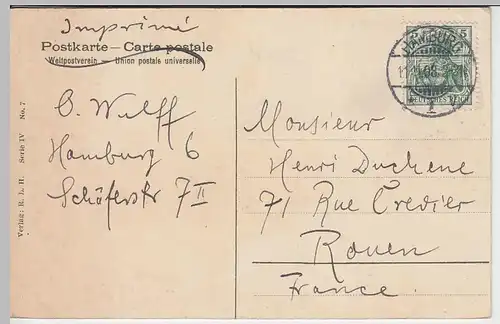 Imprimé
Postkarte — Carte postale
Weltpostverein — Union postale universelle
O. Wulff
Hamburg 6
Schäferstr 7 II
Verlag: R. L. H. Serie IV No. 7
5
HAMBURG
1
DEUTSCHES REICH
Monsieur
Henri Duchene
71 Rue Credier
Rouen
France